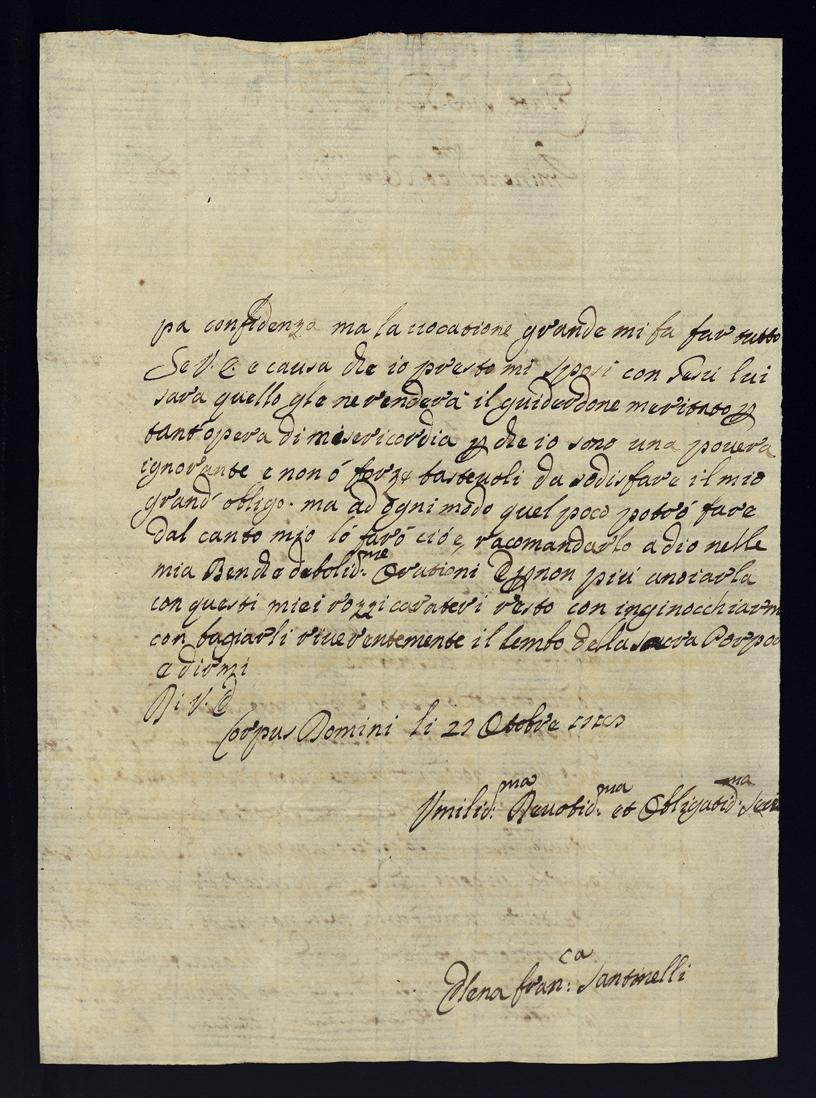 pa confidenza ma la vocatione grande mi fa far tutto
Se V. E. e causa che io presto mi sposi con Iesù lui
sara quello gle ne renderà il guiderdone meritato p
tant opera di misericordia p che io sono una povera
ignorante e non ó forze bastevoli da sodisfare il mio
grand' obligo. ma ad ogni modo quel poco potró fare
dal canto mio ló faró ció e, racomandarlo a dio nelle
mia Benche debolid.me Orationi E p non piú anoiarla
con questi miei rozzi carateri resto con inginocchiarm
con bagiarli riverentemente il lembo della sacra Porpo
e dirmi
Di V. E
Corpus Domini li 22 Otobre
Vmilid.ma Devotid.ma et Obligatid.ma
Elena Fran.ca Santinelli